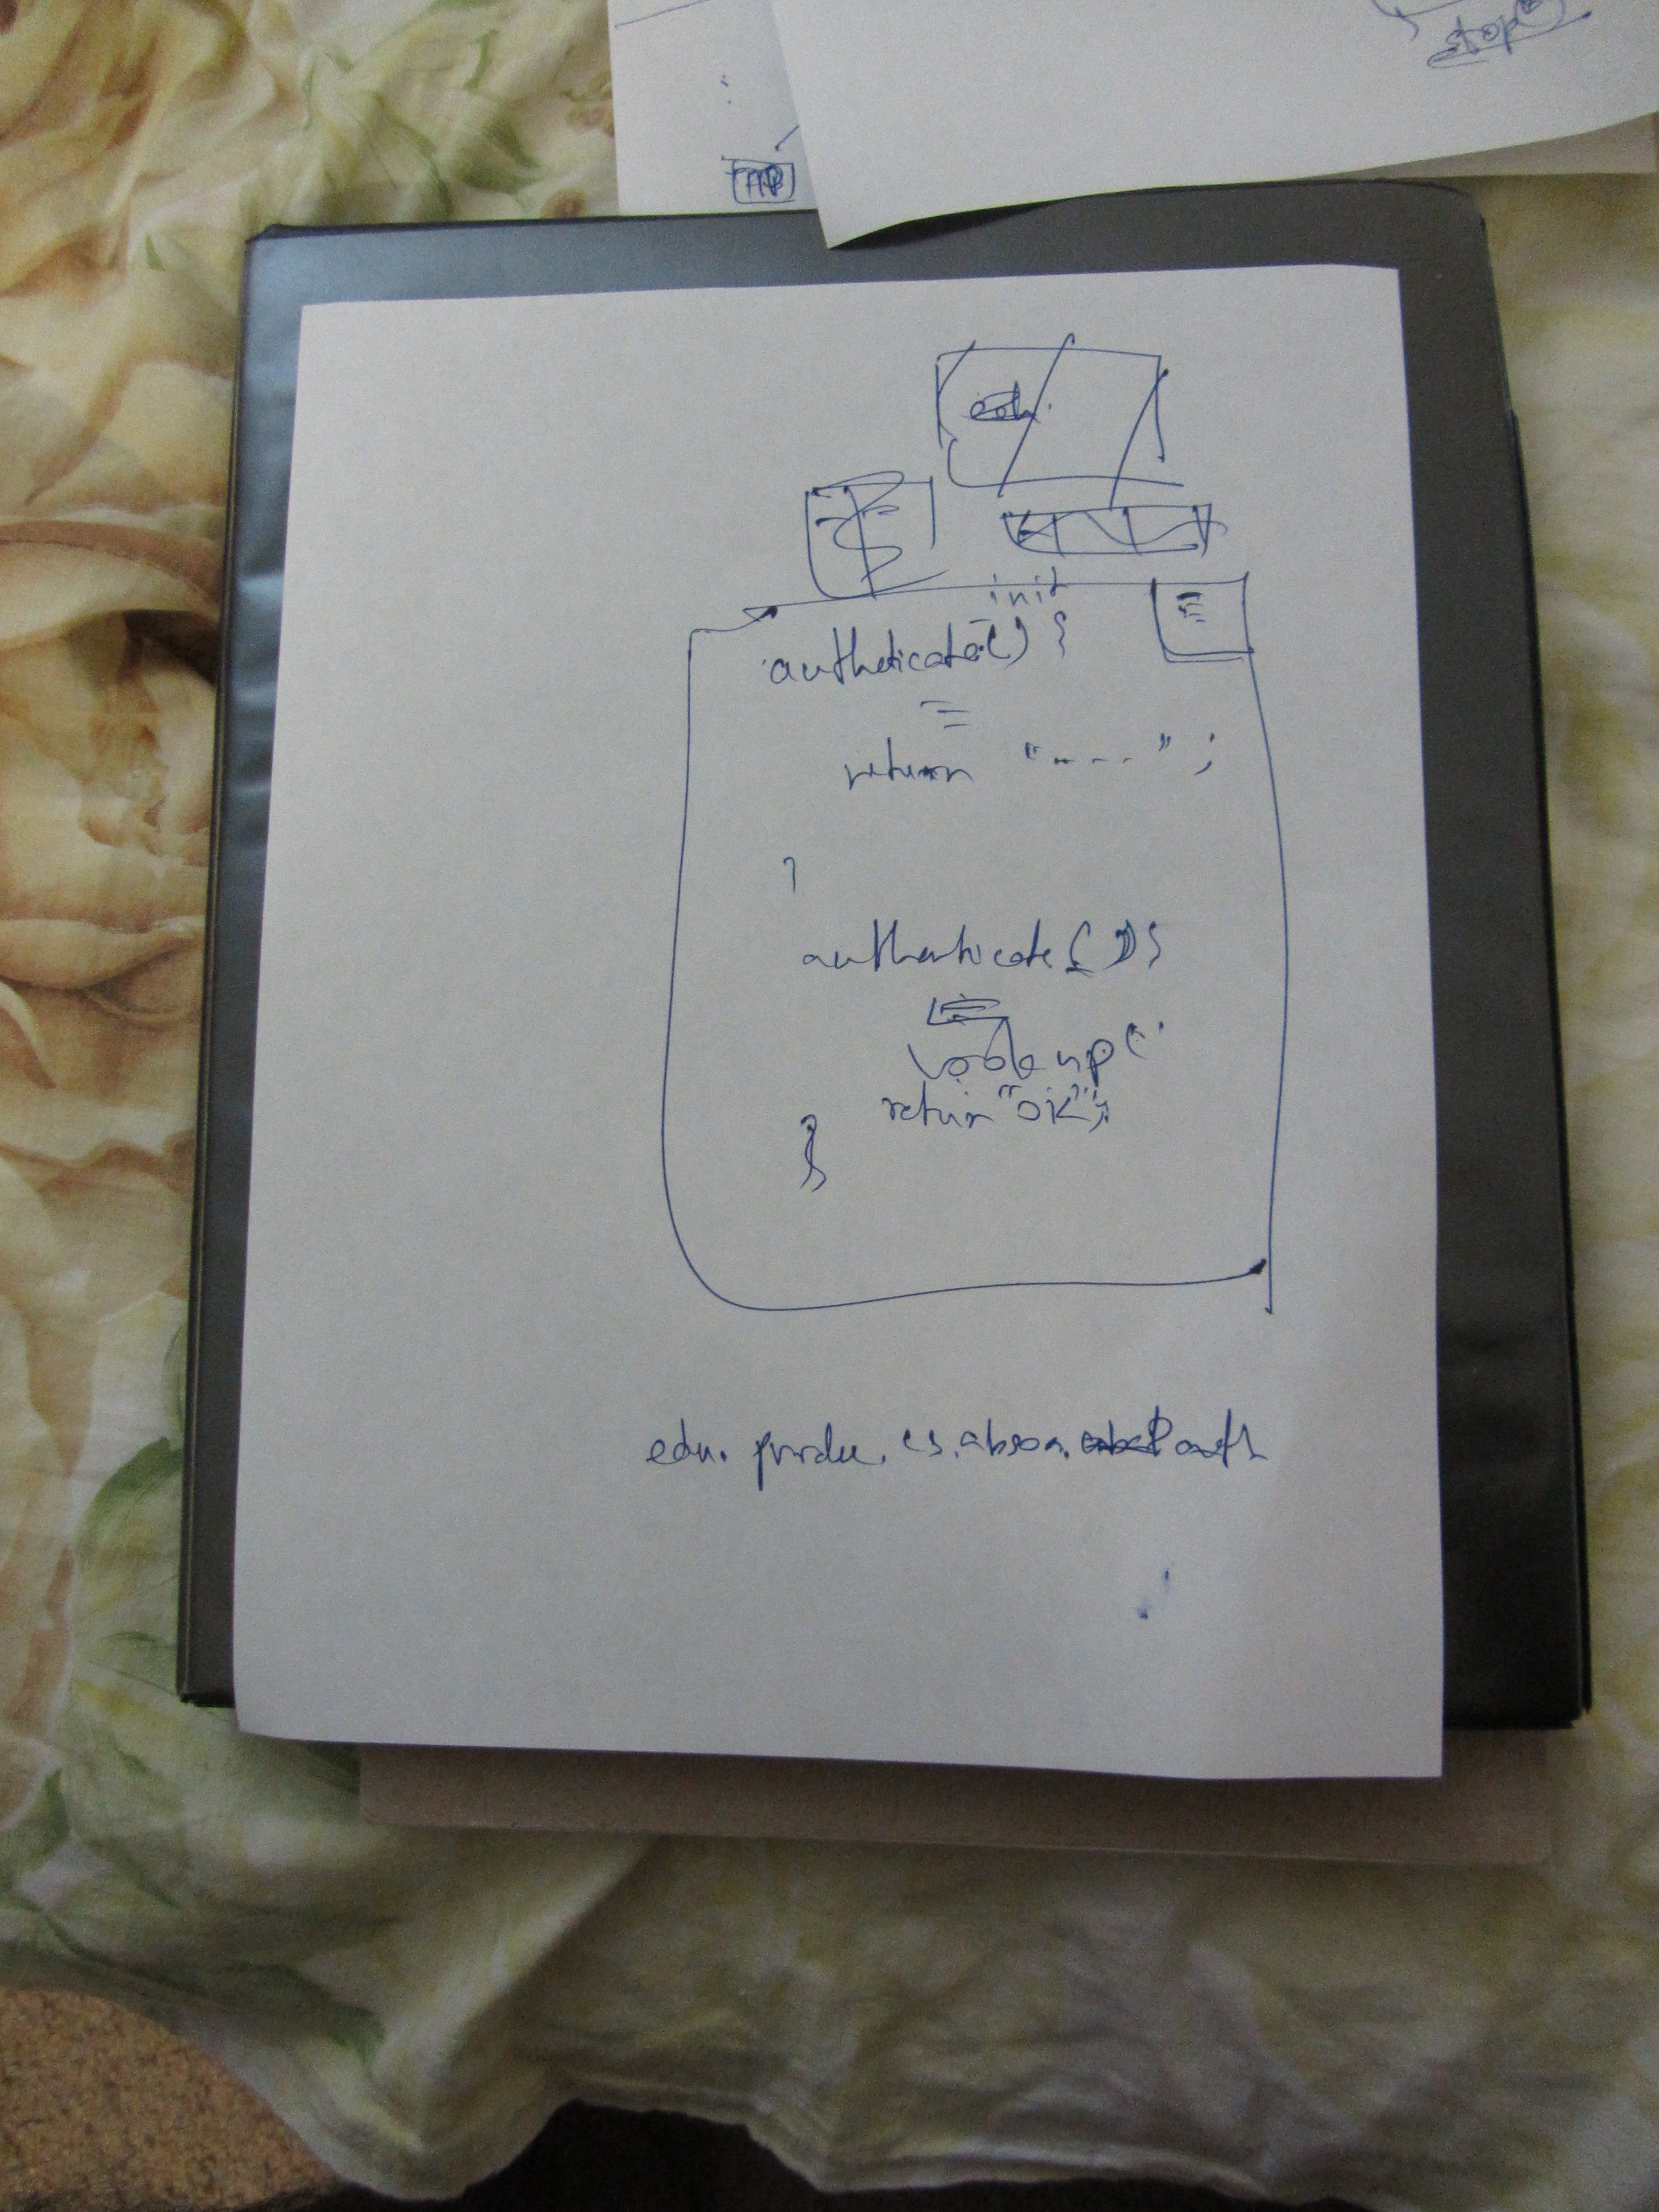 stop
init
autheticate() {
return "----";
}
authenticate() {
lookup(
return "OK";
}
edu. purdue. cs. absoa. auth